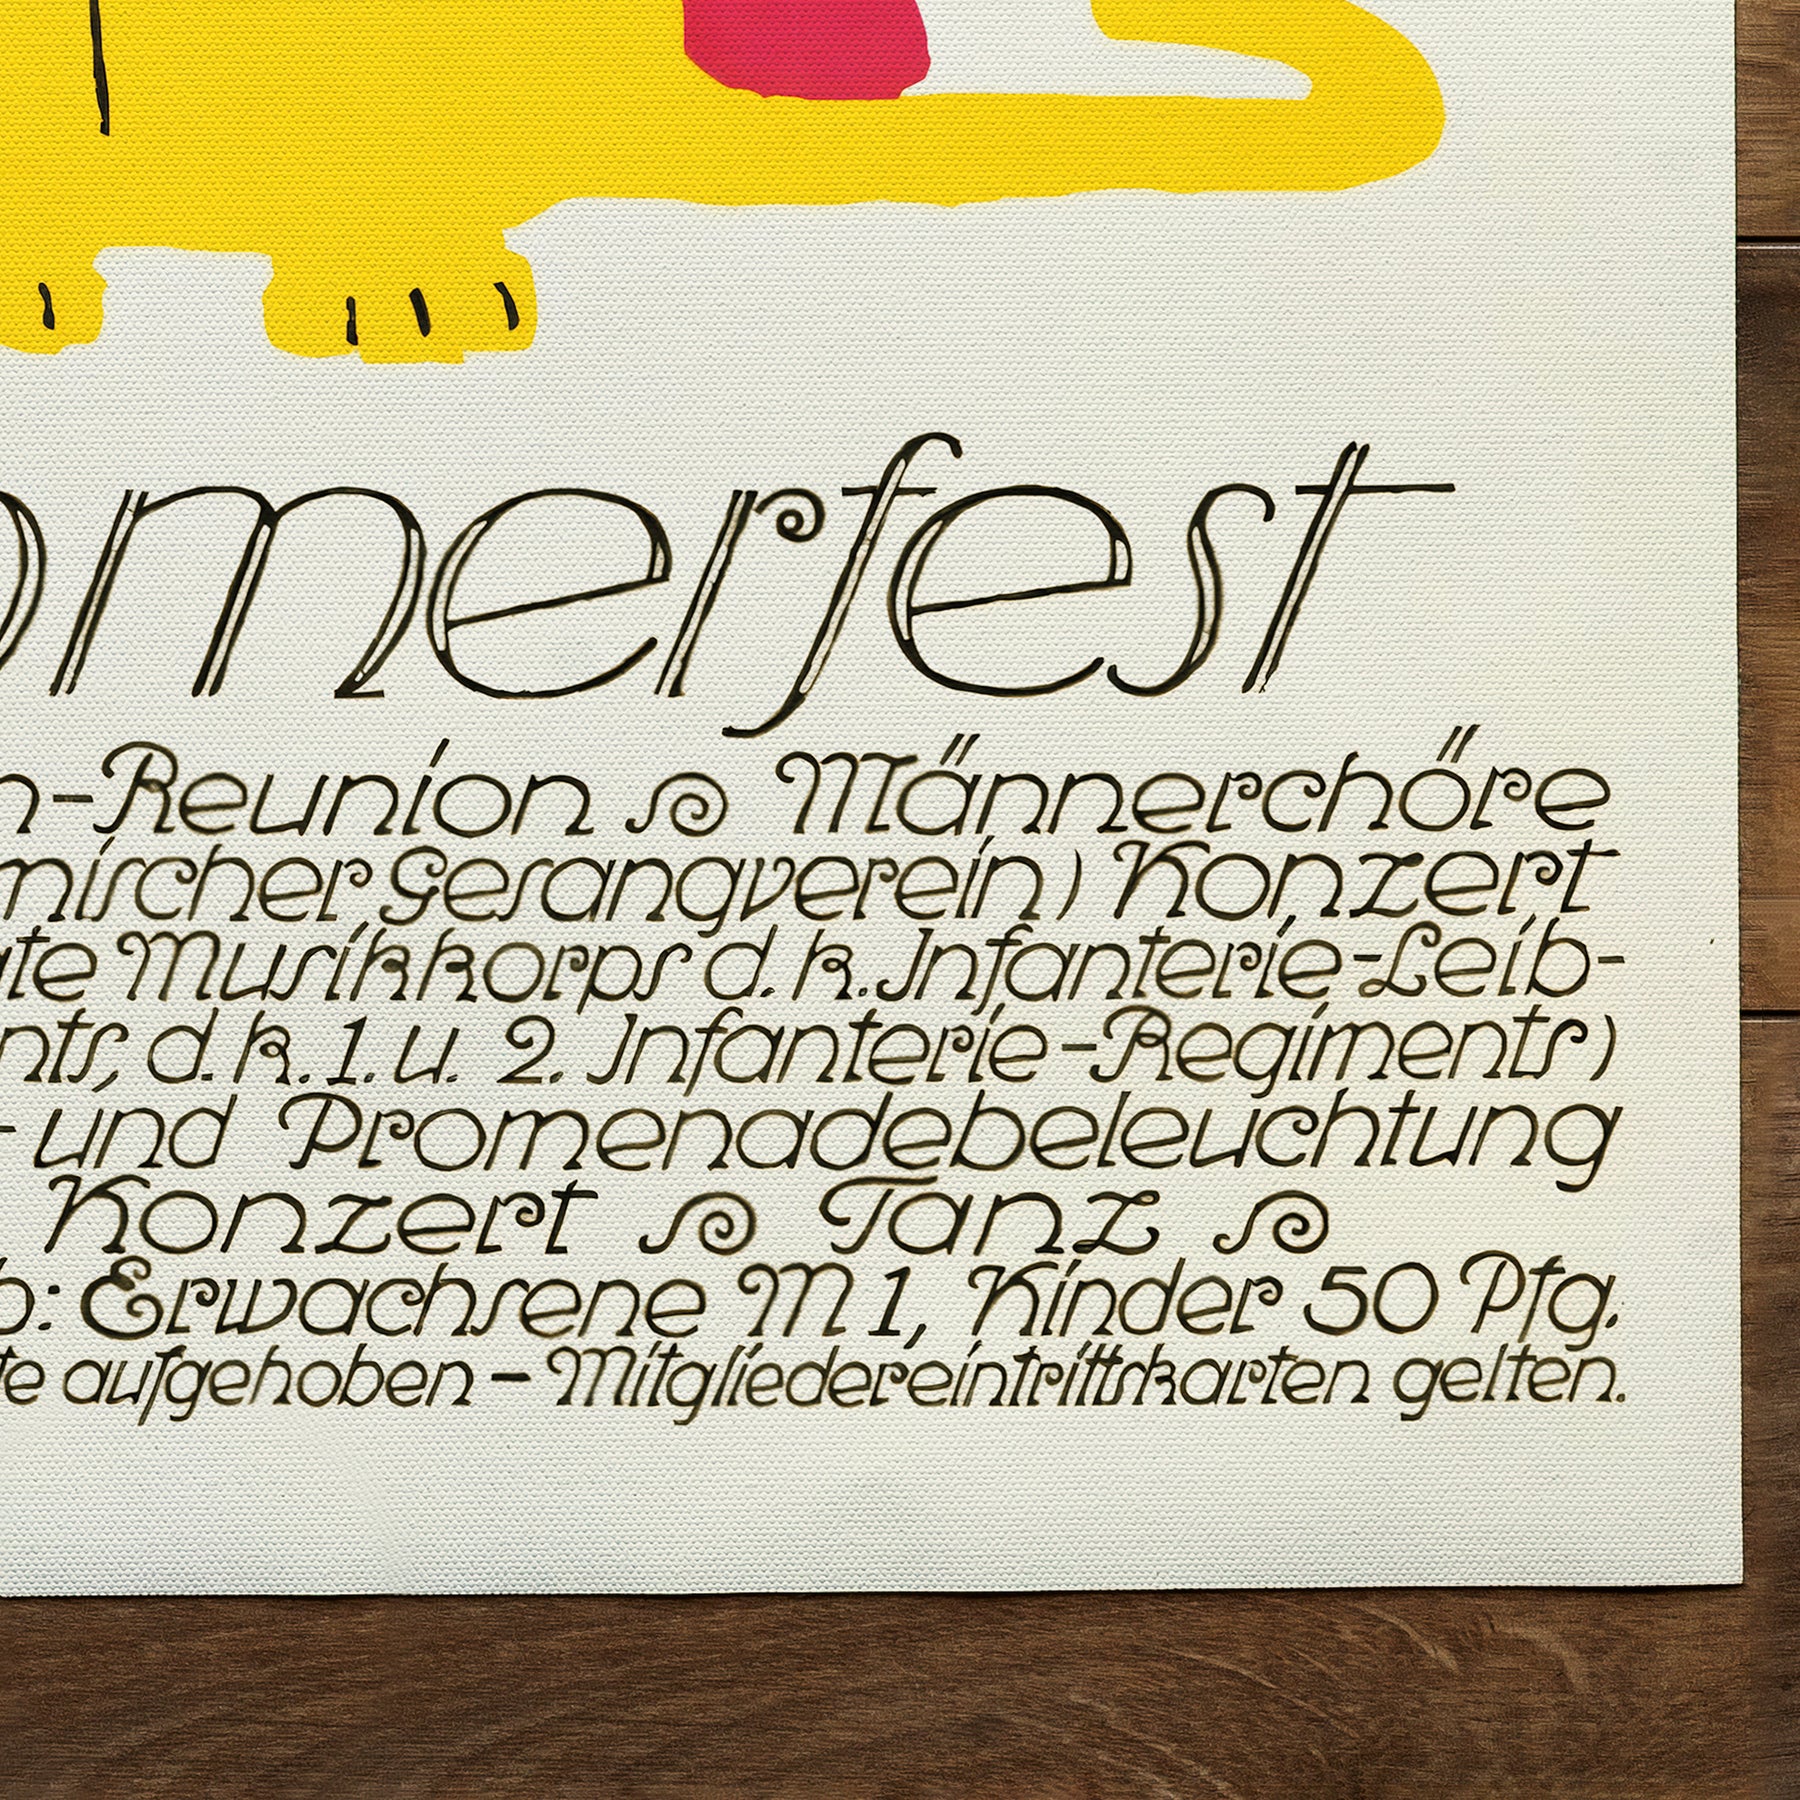 mmerfest
n-Reunion Männerchöre
mischer Gesangverein) Konzert
te Musikkorps d. k. Infanterie-Leib-
nts, d. k. 1. u. 2. Infanterie-Regiments)
- und Promenadebeleuchtung
Konzert Tanz
b: Erwachsene M 1, Kinder 50 Pfg.
te aufgehoben - Mitgliedereintrittskarten gelten.